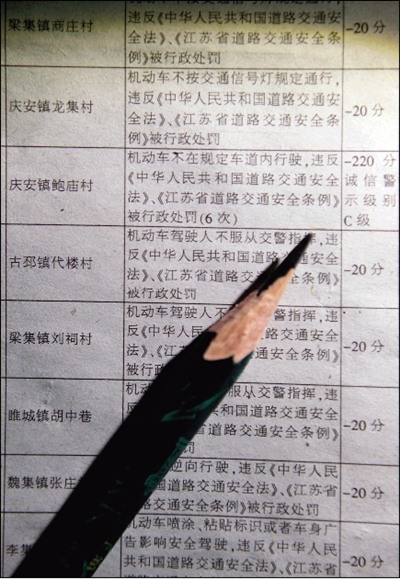 机动车不按交通信号灯规定通行,
梁集镇商庄村
违反《中华人民共和国道路交通安
全法》、《江苏省道路交通安全条
例》被行政处罚
-20分
庆安镇龙集村
机动车不按交通信号灯规定通行,
违反《中华人民共和国道路交通安
全法》、《江苏省道路交通安全条
例》被行政处罚
-20分
庆安镇鲍庙村
机动车不在规定车道内行驶,违反
《中华人民共和国道路交通安全
法》、《江苏省道路交通安全条例》
被行政处罚(6次)
-220分
诚信警
示级别
C级
古邳镇代楼村
机动车驾驶人不服从交警指挥,违
反《中华人民共和国道路交通安全
法》、《江苏省道路交通安全条例》
被行政处罚
-20分
梁集镇刘祠村
机动车驾驶人 警指挥,违
反《中华人民 道路交通安全
法》、《江 交通安全条例》
被行政
-20分
睢城镇胡中巷
机 服从交警指挥,违
反 共和国道路交通安全
法 省道路交通安全条例》
罚
-20分
魏集镇张庄
逆向行驶,违反《中华人民
道路交通安全法》、《江苏省
路交通安全条例》被行政处罚
-20分
李集
机动车喷涂、粘贴标识或者车身广
告影响安全驾驶,违反《中华人民
共和国道路交通安全法》、《江苏省
-20分